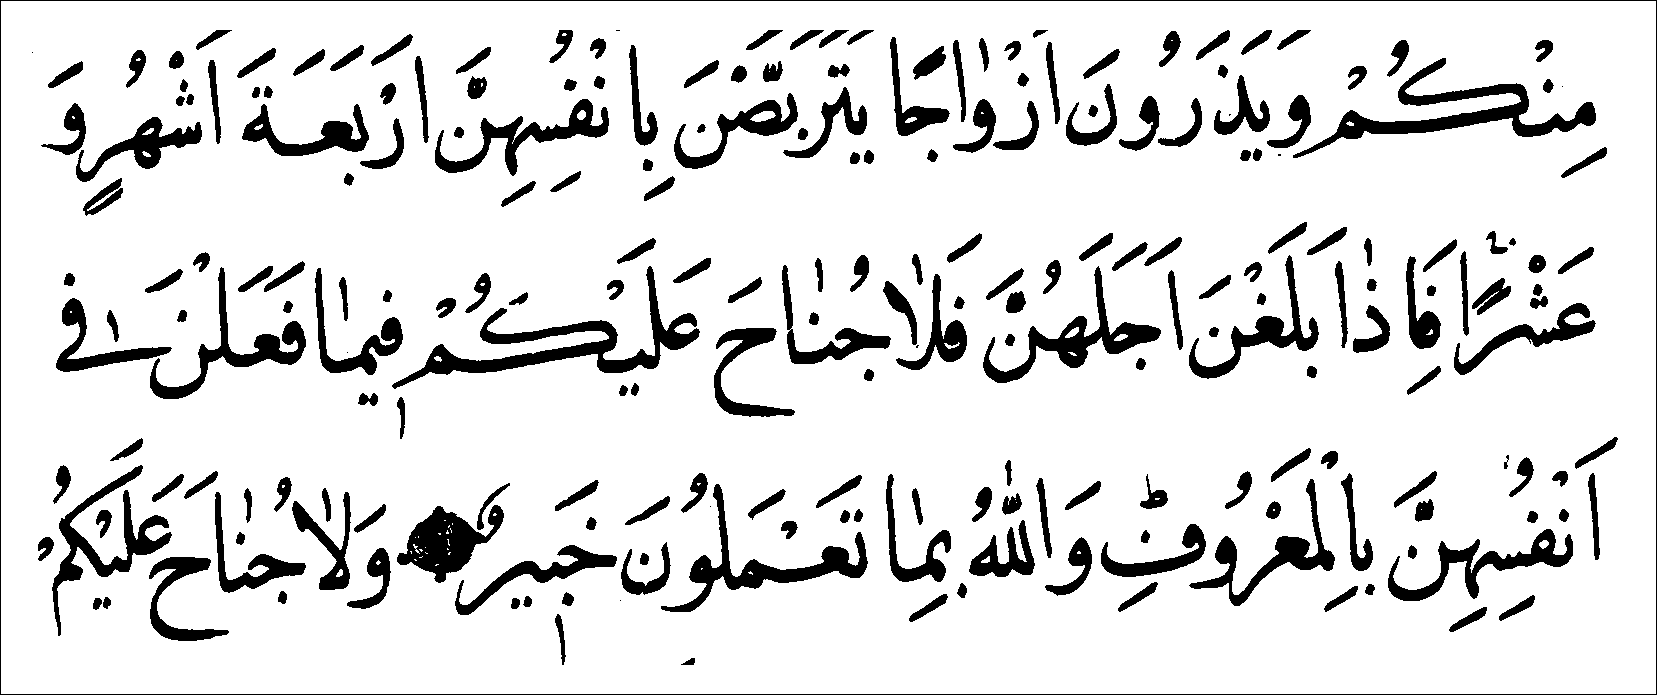 مِنْكُمْ وَيَذَرُوْنَ اَزْوٰاجًا يَتَرَبَّصْنَ بِاَنْفُسِهِنَّ اَرْبَعَةَ اَشْهُرٍ وَ
عَشْرًاۚ فَاِذٰا بَلَغْنَ اَجَلَهُنَّ فَلٰا جُنٰاحَ عَلَيْكُمْ فِيمٰا فَعَلْنَ فٖى
اَنْفُسِهِنَّ بِالْمَعْرُوفِؕ وَاللّٰهُ بِمٰا تَعْمَلُونَ خَبٖيرٌ وَلٰا جُنٰاحَ عَلَيْكُمْ